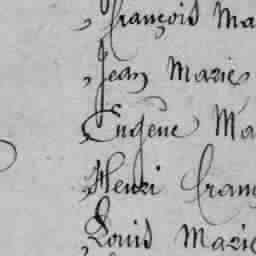 , François Ma
, Jean Marie
, Eugène Ma
, Henri Fran
Louis Marie